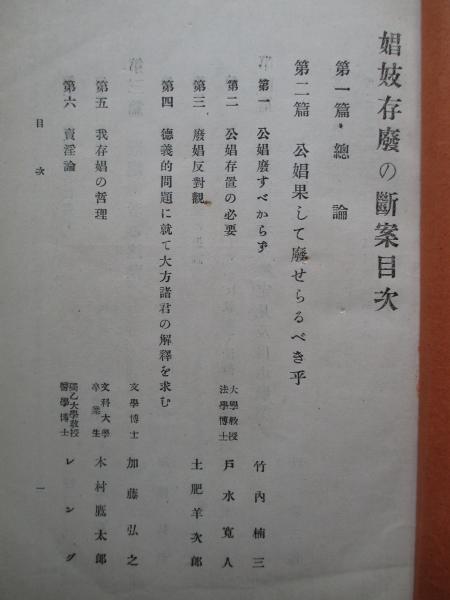 娼妓存廢の斷案目次
第一篇 總論
第二篇 公娼果して廢せらるべき乎
第一 公娼廢すべからず 竹內楠三
第二 公娼存置の必要 大學教授 法學博士 戶水寬人
第三 廢娼反對觀 土肥羊次郎
第四 德義的問題に就て大方諸君の解釋を求む 文學博士 加藤弘之
第五 我存娼の哲理 文科大學 卒業生 木村鷹太郎
第六 賣淫論 獨乙大學教授 醫學博士 レング
目次 一